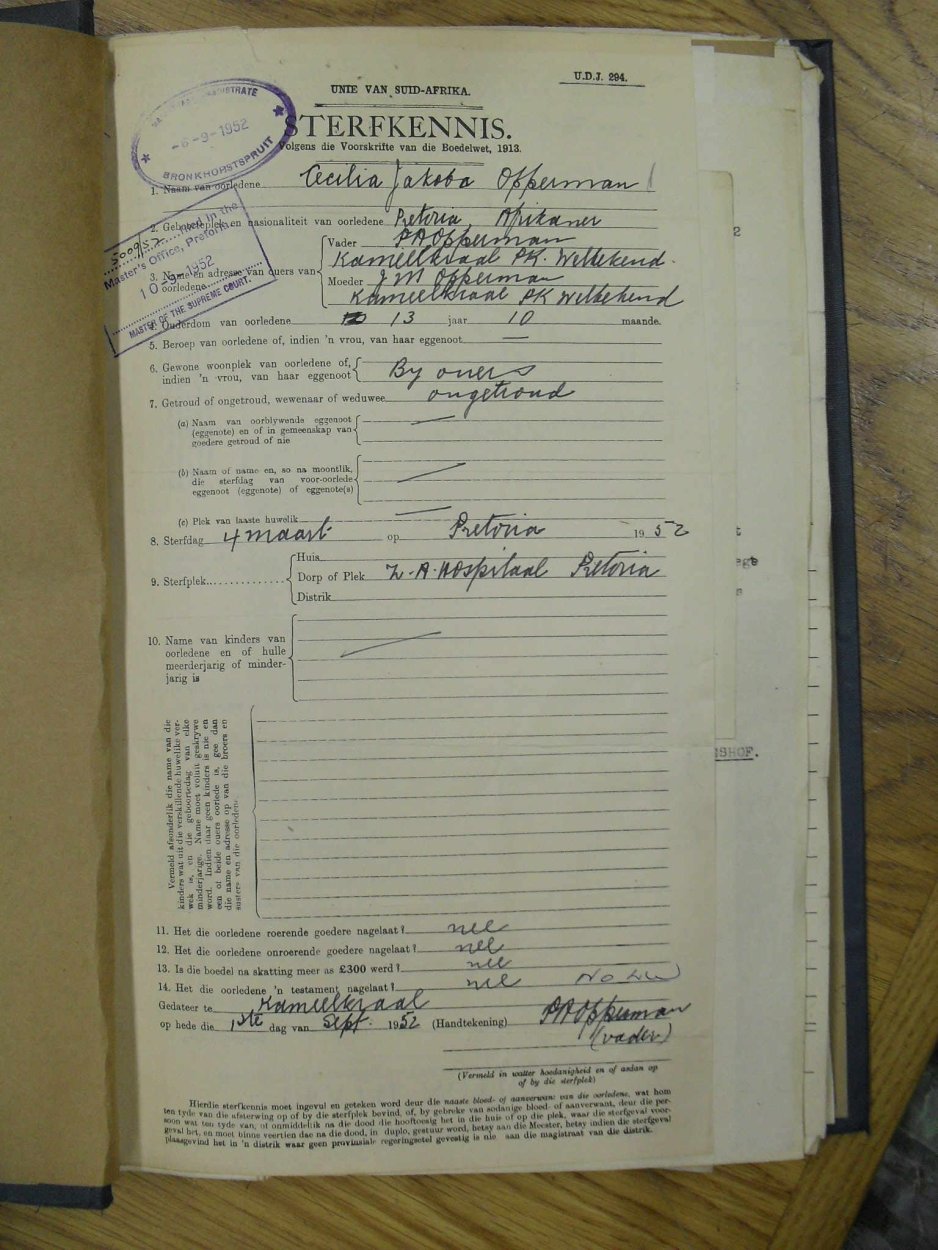 U.D.J. 294.
UNIE VAN SUID-AFRIKA.
STERFKENNIS.
Volgens die Voorskrifte van die Boedelwet, 1913.
-6-9-1952
BRONKHORSTSPRUIT
1. Naam van oorledene Cecilia Jakoba Opperman
2. Geboorteplek en nasionaliteit van oorledene Pretoria Afrikaner
5009/52 filed in the
Master's Office, Pretoria
10-9-1952
MASTER OF THE SUPREME COURT.
3. Name en adresse van ouers van oorledene
Vader P A Opperman
Kameelkraal PK. Weltekend.
Moeder J M Opperman
Kameelkraal PK Weltekend
4. Ouderdom van oorledene 13 jaar 10 maande.
5. Beroep van oorledene of, indien 'n vrou, van haar eggenoot —
6. Gewone woonplek van oorledene of,
indien 'n vrou, van haar eggenoot By ouers
7. Getroud of ongetroud, wewenaar of weduwee ongetroud
(a) Naam van oorblywende eggenoot
(eggenote) en of in gemeenskap van
goedere getroud of nie
(b) Naam of name en, so na moontlik,
die sterfdag van voor-oorlede
eggenoot (eggenote) of eggenote(s)
(c) Plek van laaste huwelik
8. Sterfdag 4 maart op Pretoria 1952
9. Sterfplek
Huis
Dorp of Plek Z. A. Hospitaal Pretoria
Distrik
10. Name van kinders van
oorledene en of hulle
meerderjarig of minder-
jarig is
Vermeld afsonderlik die name van die
kinders wat uit die verskillende huwelike ver-
wek is, en die geboortedag van elke
minderjarige. Name moet voluit geskrywe
word. Indien daar geen kinders is nie en
een of beide ouers oorlede is, gee dan
die name en adresse op van die broers en
susters van die oorledene.
SHOF.
11. Het die oorledene roerende goedere nagelaat? nee
12. Het die oorledene onroerende goedere nagelaat? nee
13. Is die boedel na skatting meer as £300 werd? nee
14. Het die oorledene 'n testament nagelaat? nee
Gedateer te Kameelkraal
op hede die 1ste dag van Sept. 1952 (Handtekening) P A Opperman
(vader)
(Vermeld in watter hoedanigheid en of aldan op
of by die sterfplek)
Hierdie sterfkennis moet ingevul en geteken word deur die naaste bloed- of aanverwant van die oorledene, wat hom
ten tyde van die afsterwing op of by die sterfplek bevind, of, by gebreke van sodanige bloed- of aanverwant, deur die per-
soon wat ten tyde van, of onmiddellik na die dood die hooftoesig het in die huis of op die plek, waar die sterfgeval voor-
geval het, en moet binne veertien dae na die dood, in duplo, gestuur word, hetsy aan die Meester, hetsy indien die sterfgeval
plaasgevind het in 'n distrik waar geen provinsiale regeringsetel gevestig is nie aan die magistraat van die distrik.